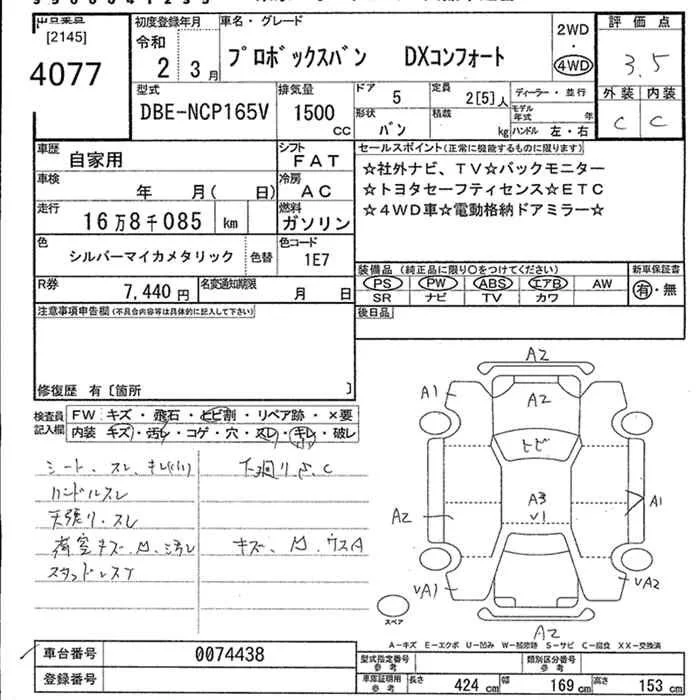 出品番号
[2145]
4077
初度登録年月
令和
2 3月
車名・グレード
プロボックスバン DXコンフォート
2WD
・
4WD
評価点
3.5
外装 内装
C C
型式
DBE-NCP165V
排気量
1500
CC
ドア 5
定員 2[5]人
ディーラー・並行
形状 バン
積載 kg
モデル年式 年
ハンドル 左・右
車歴 自家用
シフト FAT
車検 年 月( 日)
冷房 AC
走行 16万8千085 km
燃料 ガソリン
色 シルバーマイカメタリック 色替
色コード 1E7
R券 7,440円
名変通知期限 月 日
セールスポイント(正常に機能するものに限ります)
☆社外ナビ、TV☆バックモニター
☆トヨタセーフティセンス☆ETC
☆4WD車☆電動格納ドアミラー☆
装備品(純正品に限り○をつけてください)
新車保証書
PS PW ABS エアB AW
SR ナビ TV カワ
有・無
後日品
注意事項申告欄(不具合内容等は具体的に記入して下さい)
修復歴 有〔箇所 〕
検査員記入欄
FW キズ・飛石・ヒビ割・リペア跡・×要
内装 キズ・汚レ・コゲ・穴・スレ・キレ・破レ
シート、スレ、キレ(小)
ハンドルスレ
天張り・スレ
荷室キズ、凹、汚レ
下廻りS、C
キズ、凹、ウスA
A2
A1
A2
ヒビ
A3
V1
A1
A2
VA1
VA2
A2
スペア
A-キズ E-エクボ U-凹み W-補修跡 S-サビ C-腐食 XX-交換済
車台番号 0074438
登録番号
型式指定番号 参考
類別区分番号 参考
車庫証明用 参考
長さ 424 cm 幅 169 cm 高さ 153 cm